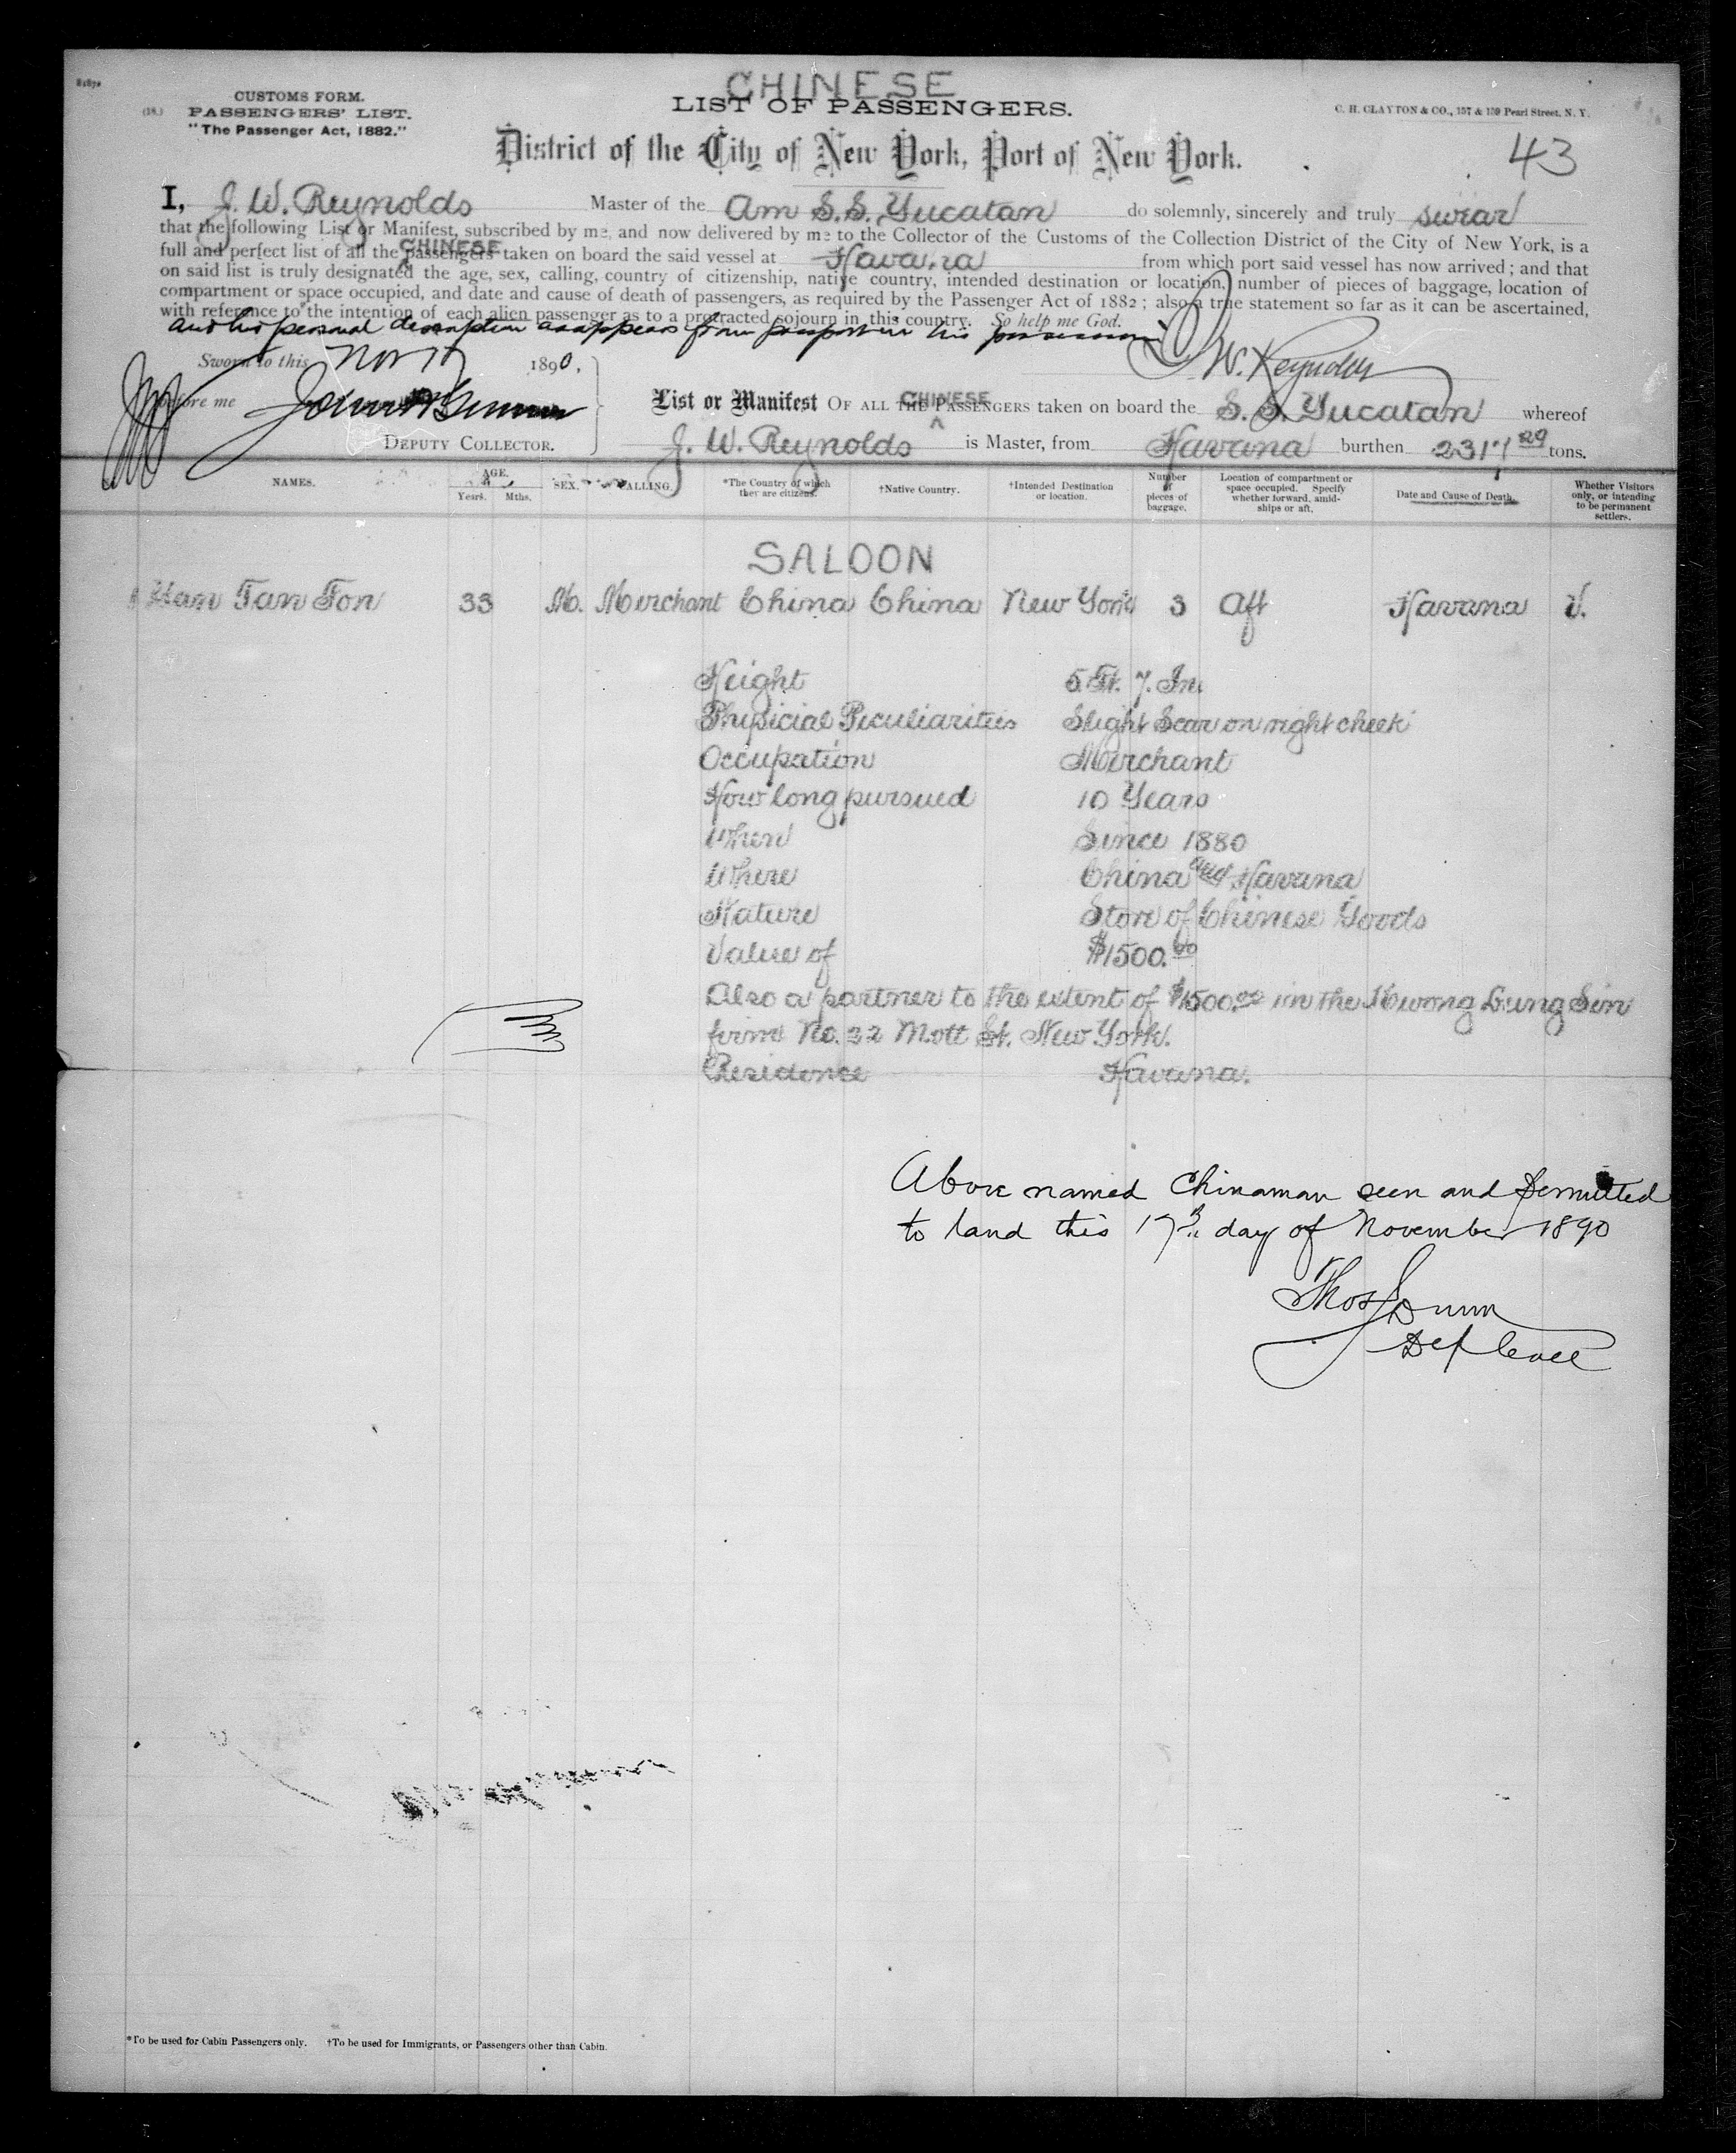 CHINESE
CUSTOMS FORM.
(18.) PASSENGERS' LIST.
"The Passenger Act, 1882."
LIST OF PASSENGERS.
C. H. CLAYTON & CO., 157 & 159 Pearl Street, N. Y.
District of the City of New York, Port of New York.
43
I, J. W. Reynolds Master of the Am S.S. Yucatan do solemnly, sincerely and truly swear
that the following List or Manifest, subscribed by me, and now delivered by me to the Collector of the Customs of the Collection District of the City of New York, is a
full and perfect list of all the CHINESE passengers taken on board the said vessel at Havana from which port said vessel has now arrived; and that
on said list is truly designated the age, sex, calling, country of citizenship, native country, intended destination or location, number of pieces of baggage, location of
compartment or space occupied, and date and cause of death of passengers, as required by the Passenger Act of 1882; also a true statement so far as it can be ascertained,
with reference to the intention of each alien passenger as to a protracted sojourn in this country. So help me God.
and his personal description as appears from passport in his possession
Sworn to this Nov 17 1890.
J W. Reynolds
before me
DEPUTY COLLECTOR.
List or Manifest OF ALL THE CHINESE PASSENGERS taken on board the S. S. Yucatan whereof
J. W. Reynolds is Master, from Havana burthen 2317 29 tons.
NAMES. AGE. Years. Mths. SEX. CALLING. *The Country of which they are citizens. †Native Country. †Intended Destination or location. Number of pieces of baggage. Location of compartment or space occupied. Specify whether forward, amidships or aft. Date and Cause of Death. Whether Visitors only, or intending to be permanent settlers.
SALOON
Tan Fon 33 M. Merchant China China New York 3 Aft Havana V.
Height 5 Ft. 7. In
Physicial Peculiarities Slight Scar on right cheek
Occupation Merchant
How long pursued 10 Years
When Since 1880
Where China and Havana
Nature Store of Chinese Goods
Value of $1500.00
Also a partner to the extent of $1500.00 in the Kwong Lung Sin
firm No. 22 Mott St. New York.
Residence Havana.
Above named Chinaman seen and permitted
to land this 17th day of November 1890
Thos Dunn
*To be used for Cabin Passengers only. †To be used for Immigrants, or Passengers other than Cabin.